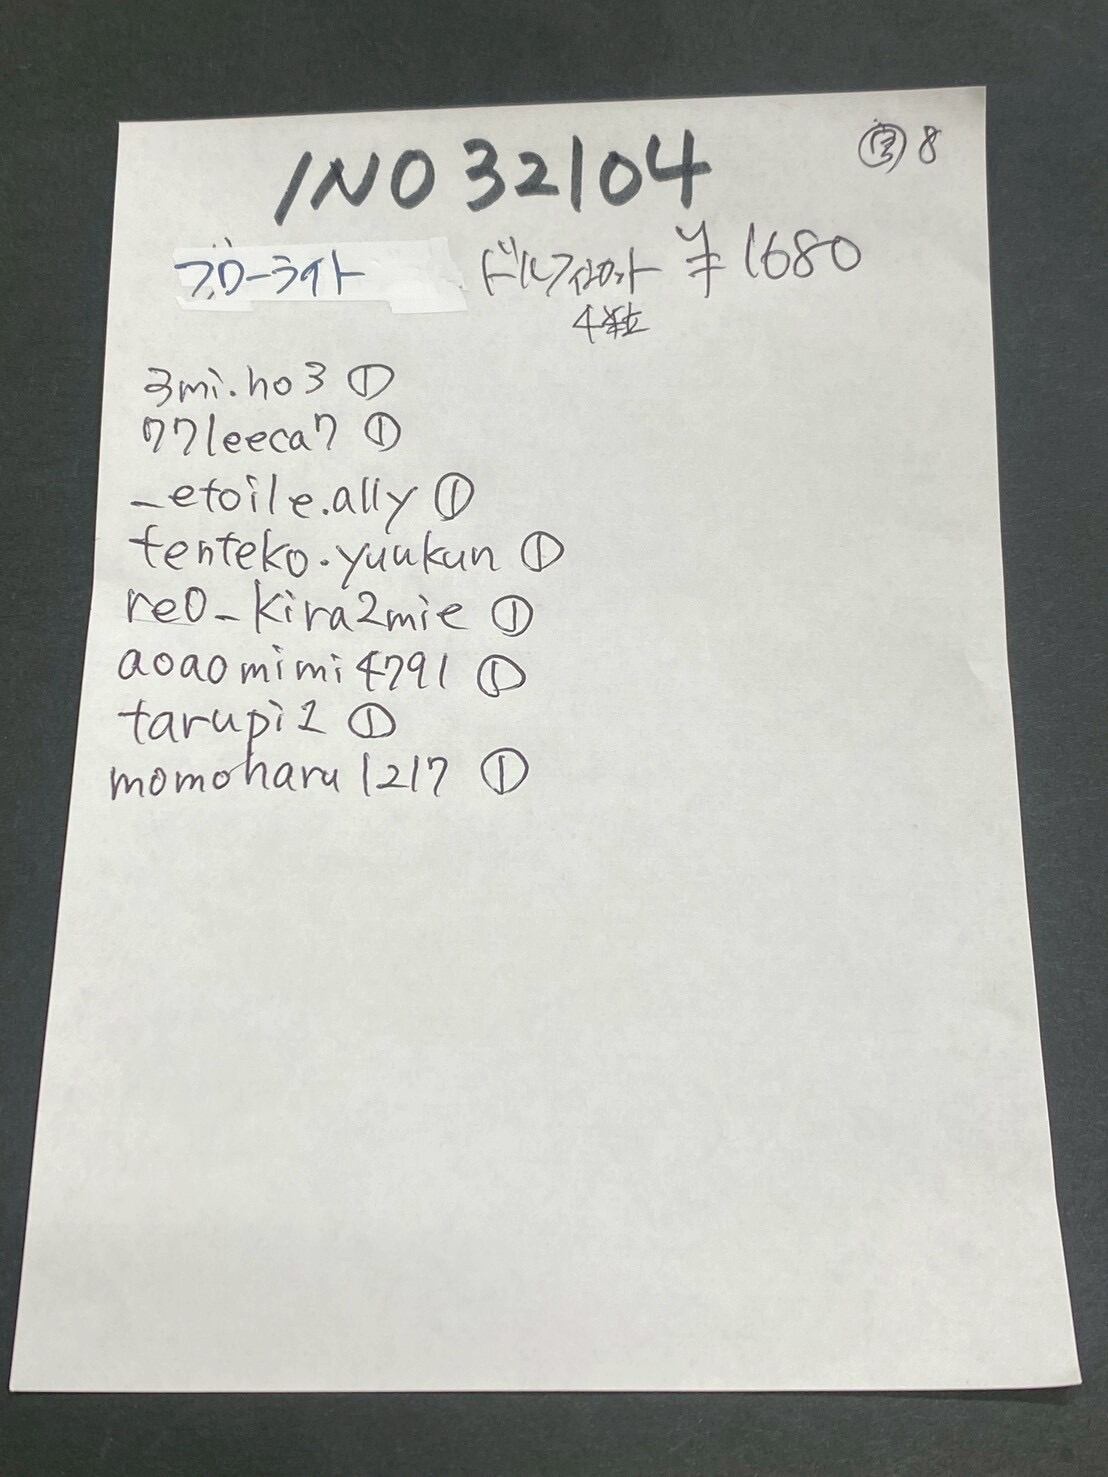 INO 32104
8
フローライト ドルフィンカット ¥1680
4粒
3mi.ho3 ①
77leeca7 ①
_etoile.ally ①
tenteko.yuukun ①
re0_kira2mie ①
aoaomimi4791 ①
tarupi1 ①
momoharu1217 ①